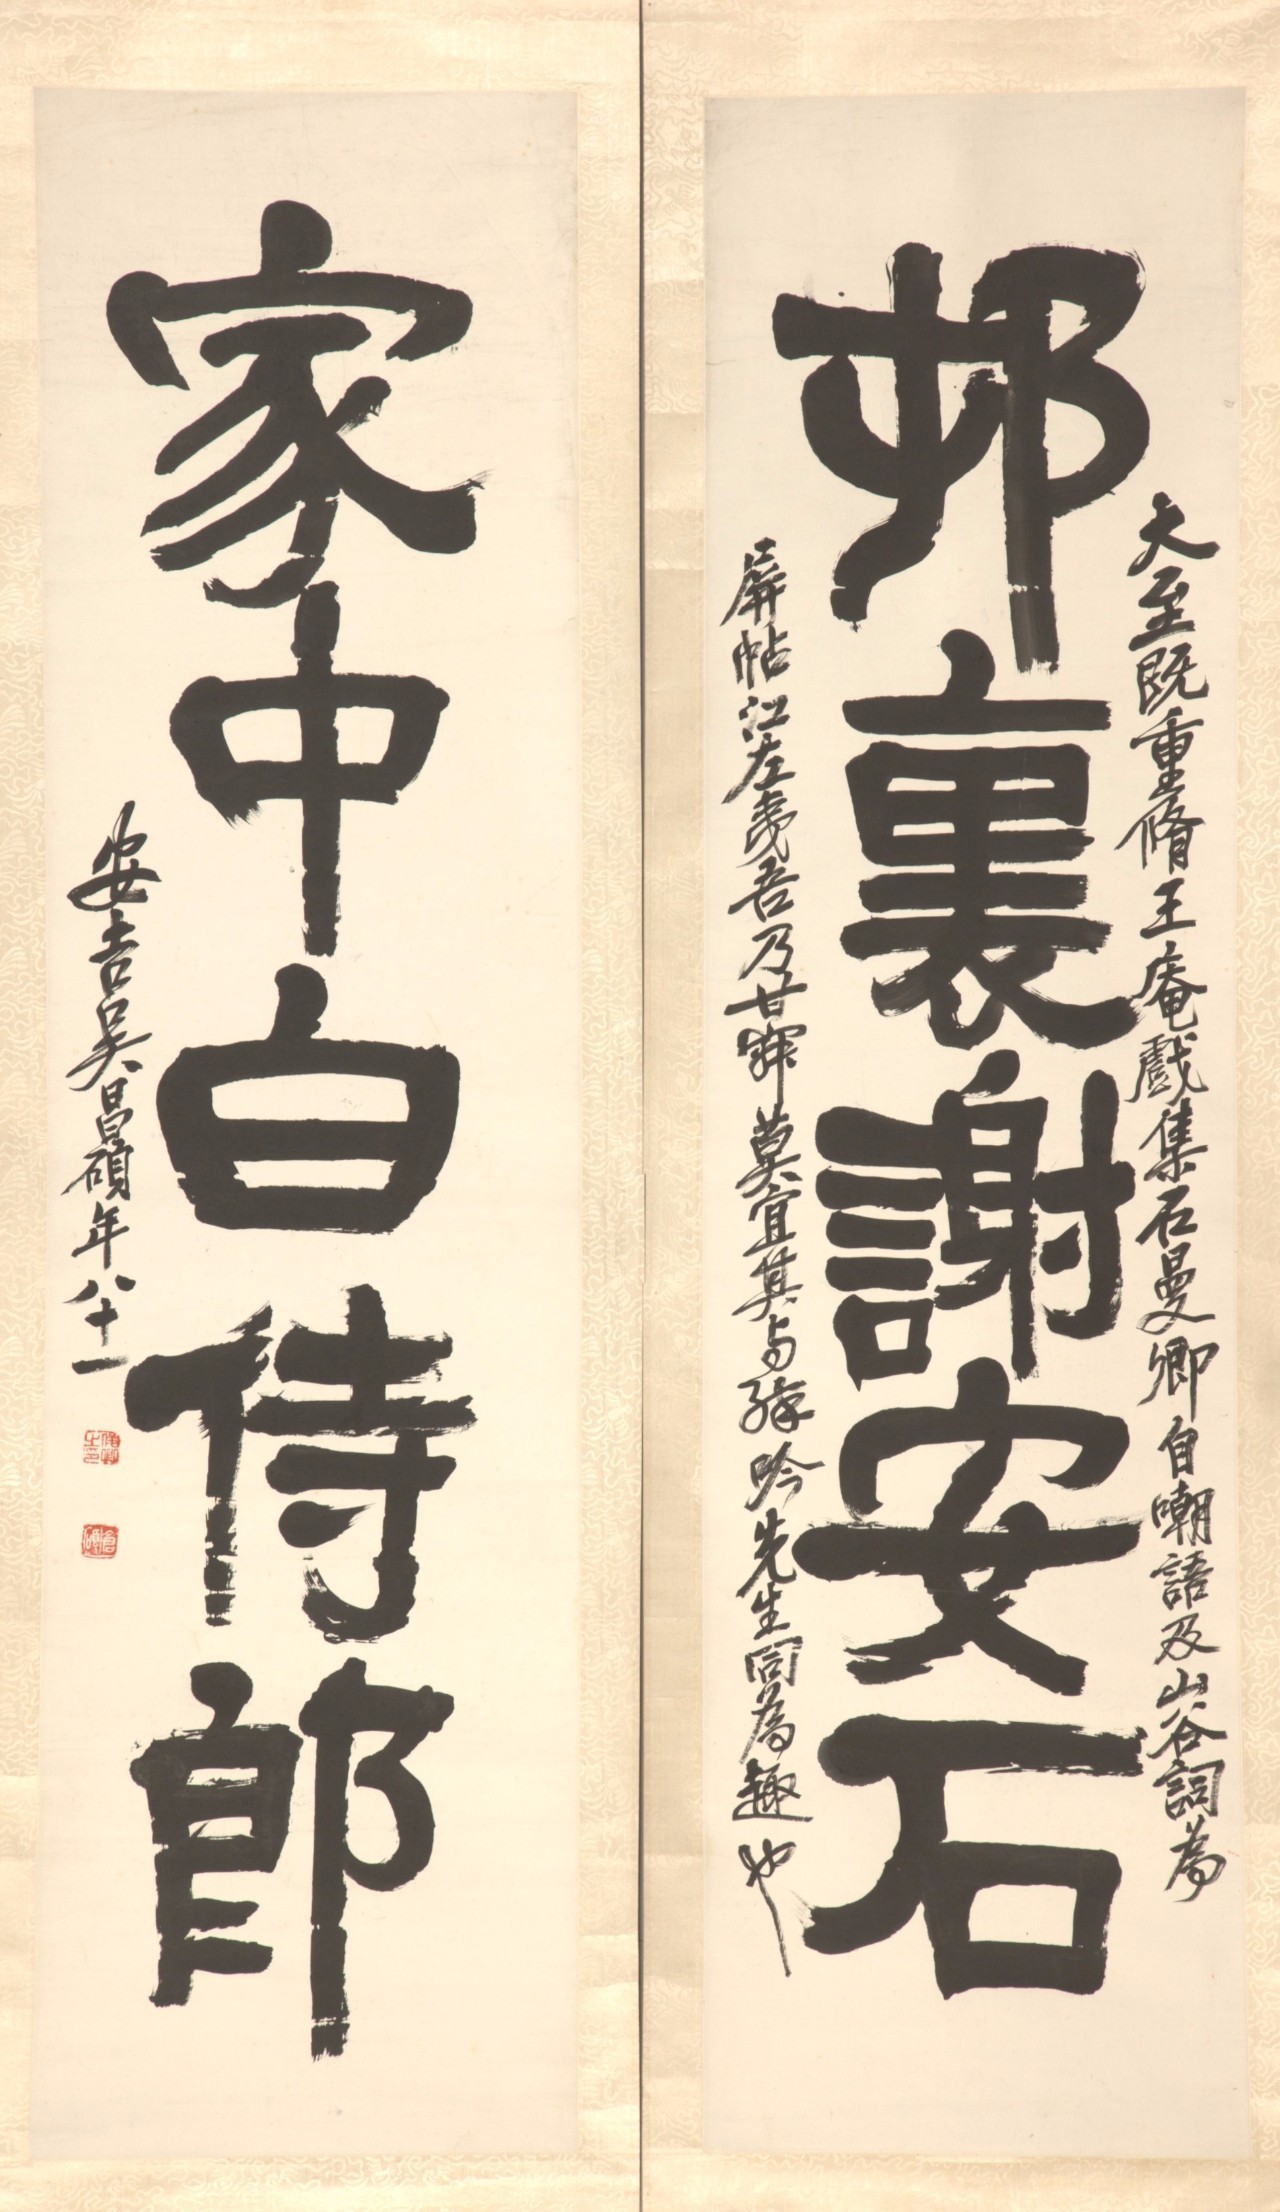 大至既重脩王庵戲集石曼卿自嘲語及山谷詞為
邨裏謝安石
屏帖江左夷吾乃甘莫宜其与吟先生同為趣也
家中白侍郎
安吉吳昌碩年八十一
俊卿之印
倉碩